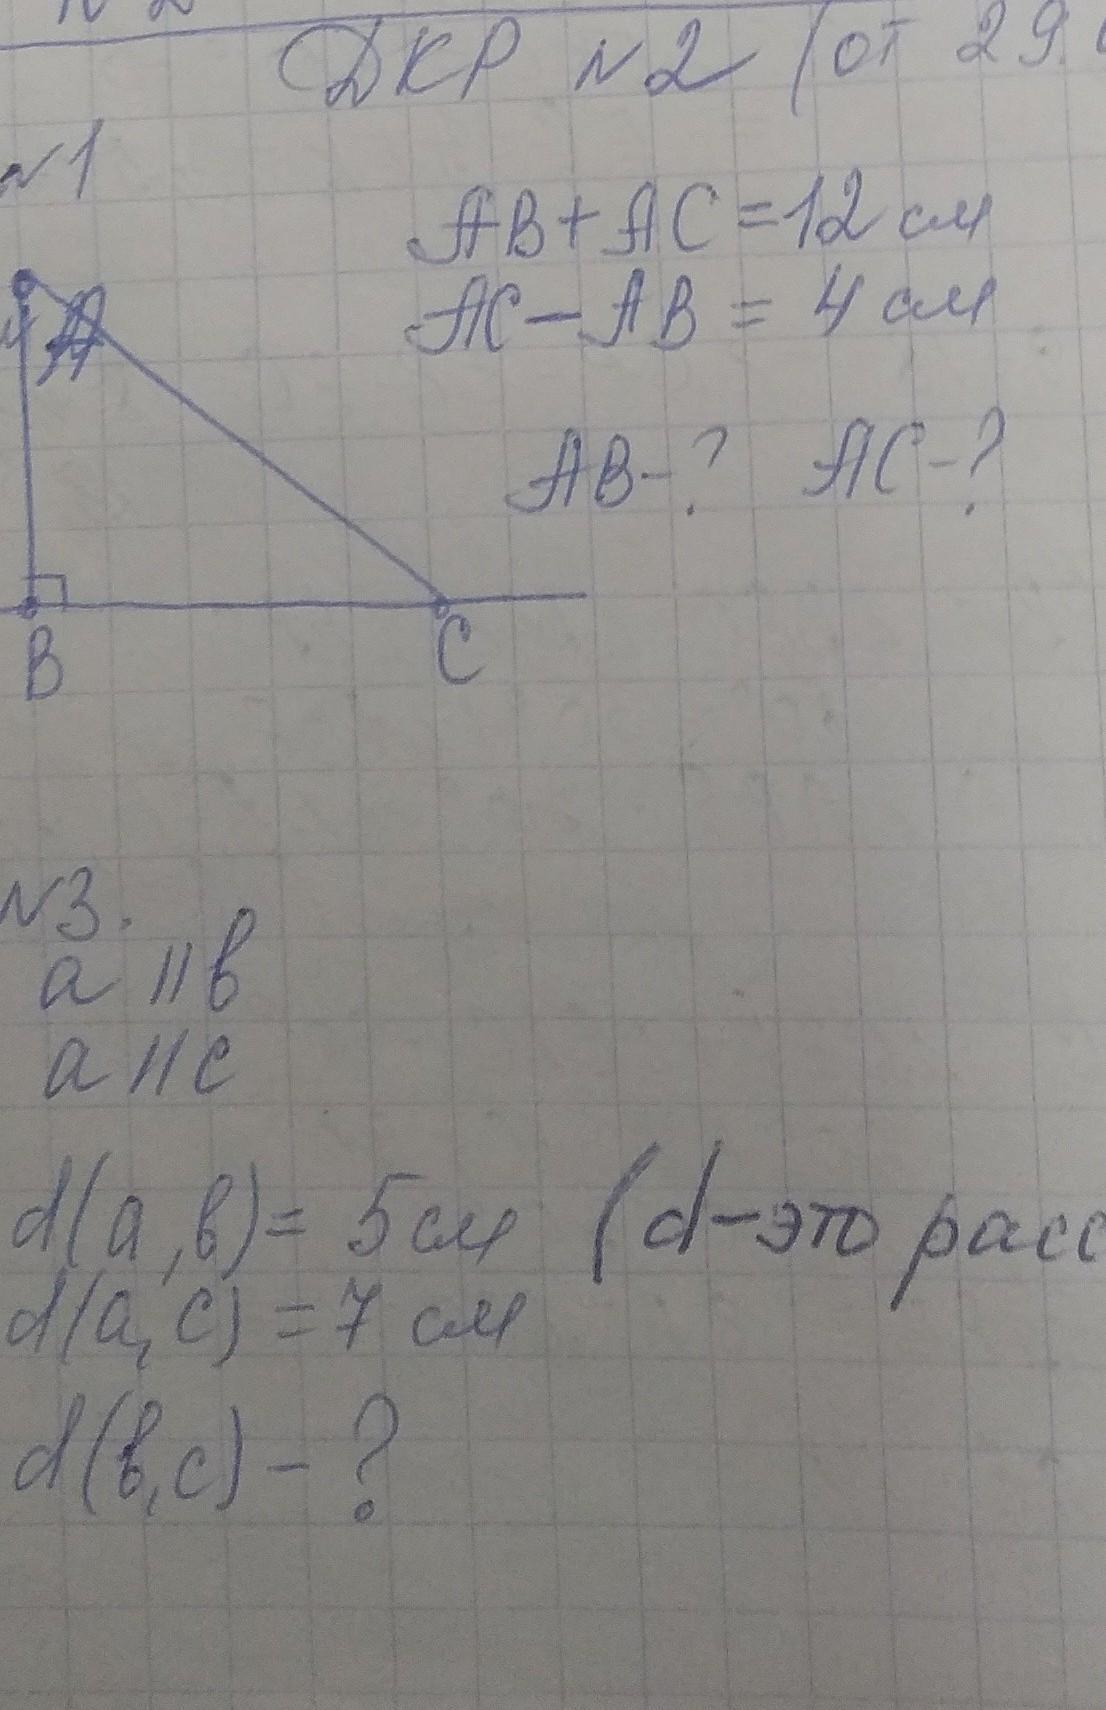 ДКР №2 (от 29.
№1
AB+AC=12 см
AC-AB=4 см
A
AB-? AC-?
B C
№3.
a || b
a || c
d(a,b)=5см (d-это расс
d(a,c)=7 см
d(b,c)-?